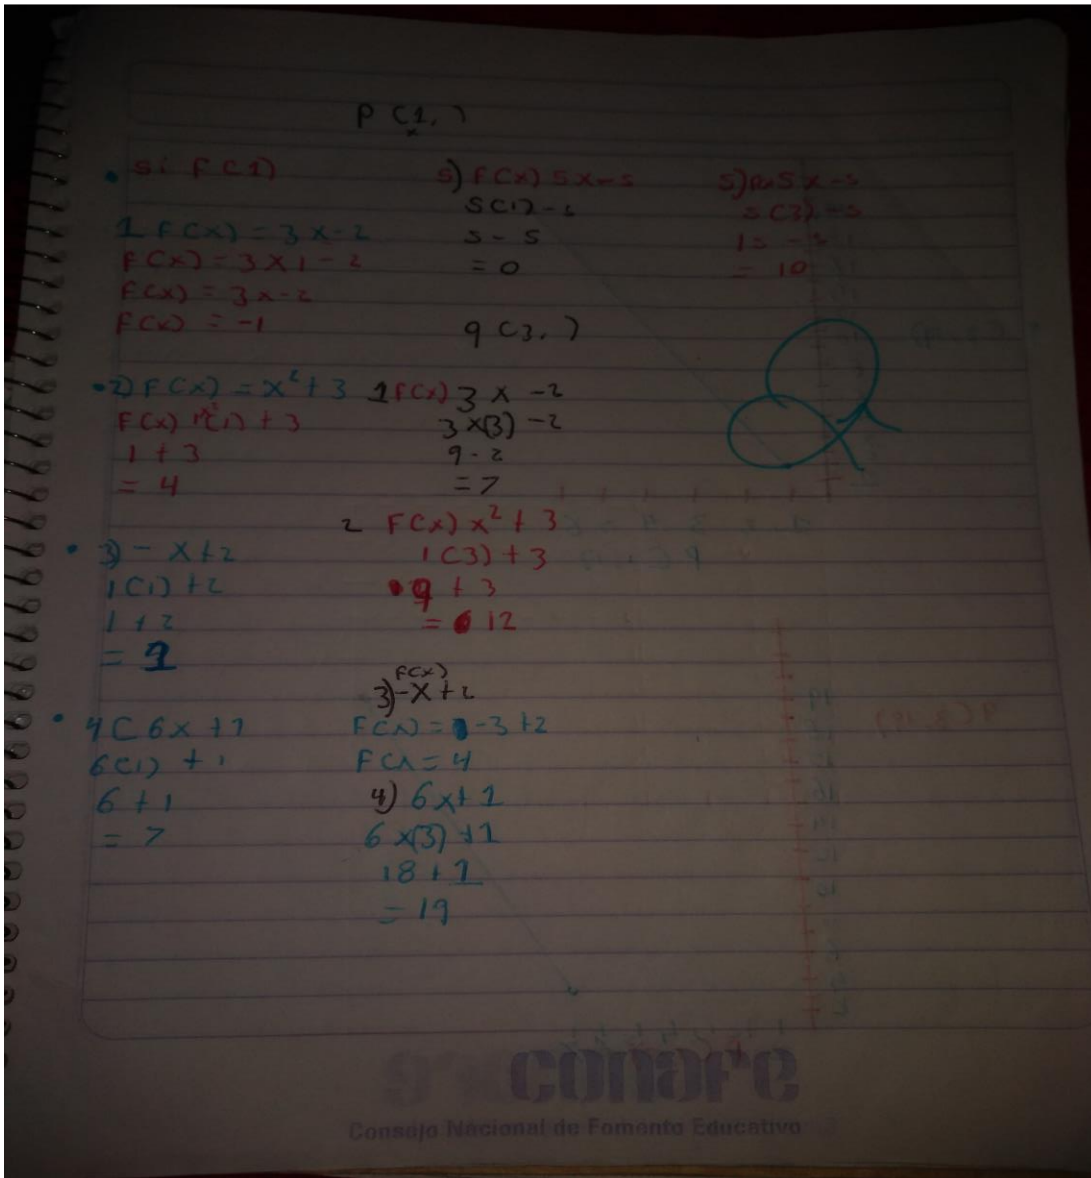 P (1, )
x
• si F(1)
1 F(x) = 3x-2
F(x) = 3x1-2
F(x) = 3x-2
F(x) = -1
• 2) F(x) = x² + 3
F(x) 1²(1) + 3
1 + 3
= 4
• 3) - x+2
1(1) +2
1 + 2
=
• 4( 6x +1
6(1) + 1
6 + 1
= 7
5) F(x) 5x-5
5(1)-5
5 - 5
= 0
q (3, )
1 F(x) 3 x -2
3x(3) -2
9 - 2
= 7
2 F(x) x² + 3
1(3) + 3
9 + 3
= 12
F(x)
3) -x+2
F(x) = -3+2
F(x = 4
4) 6x+1
6x(3) +1
18 + 1
= 19
5) 5x-5
5(3)-5
15 - 5
= 10
conafe
Consejo Nacional de Fomento Educativo